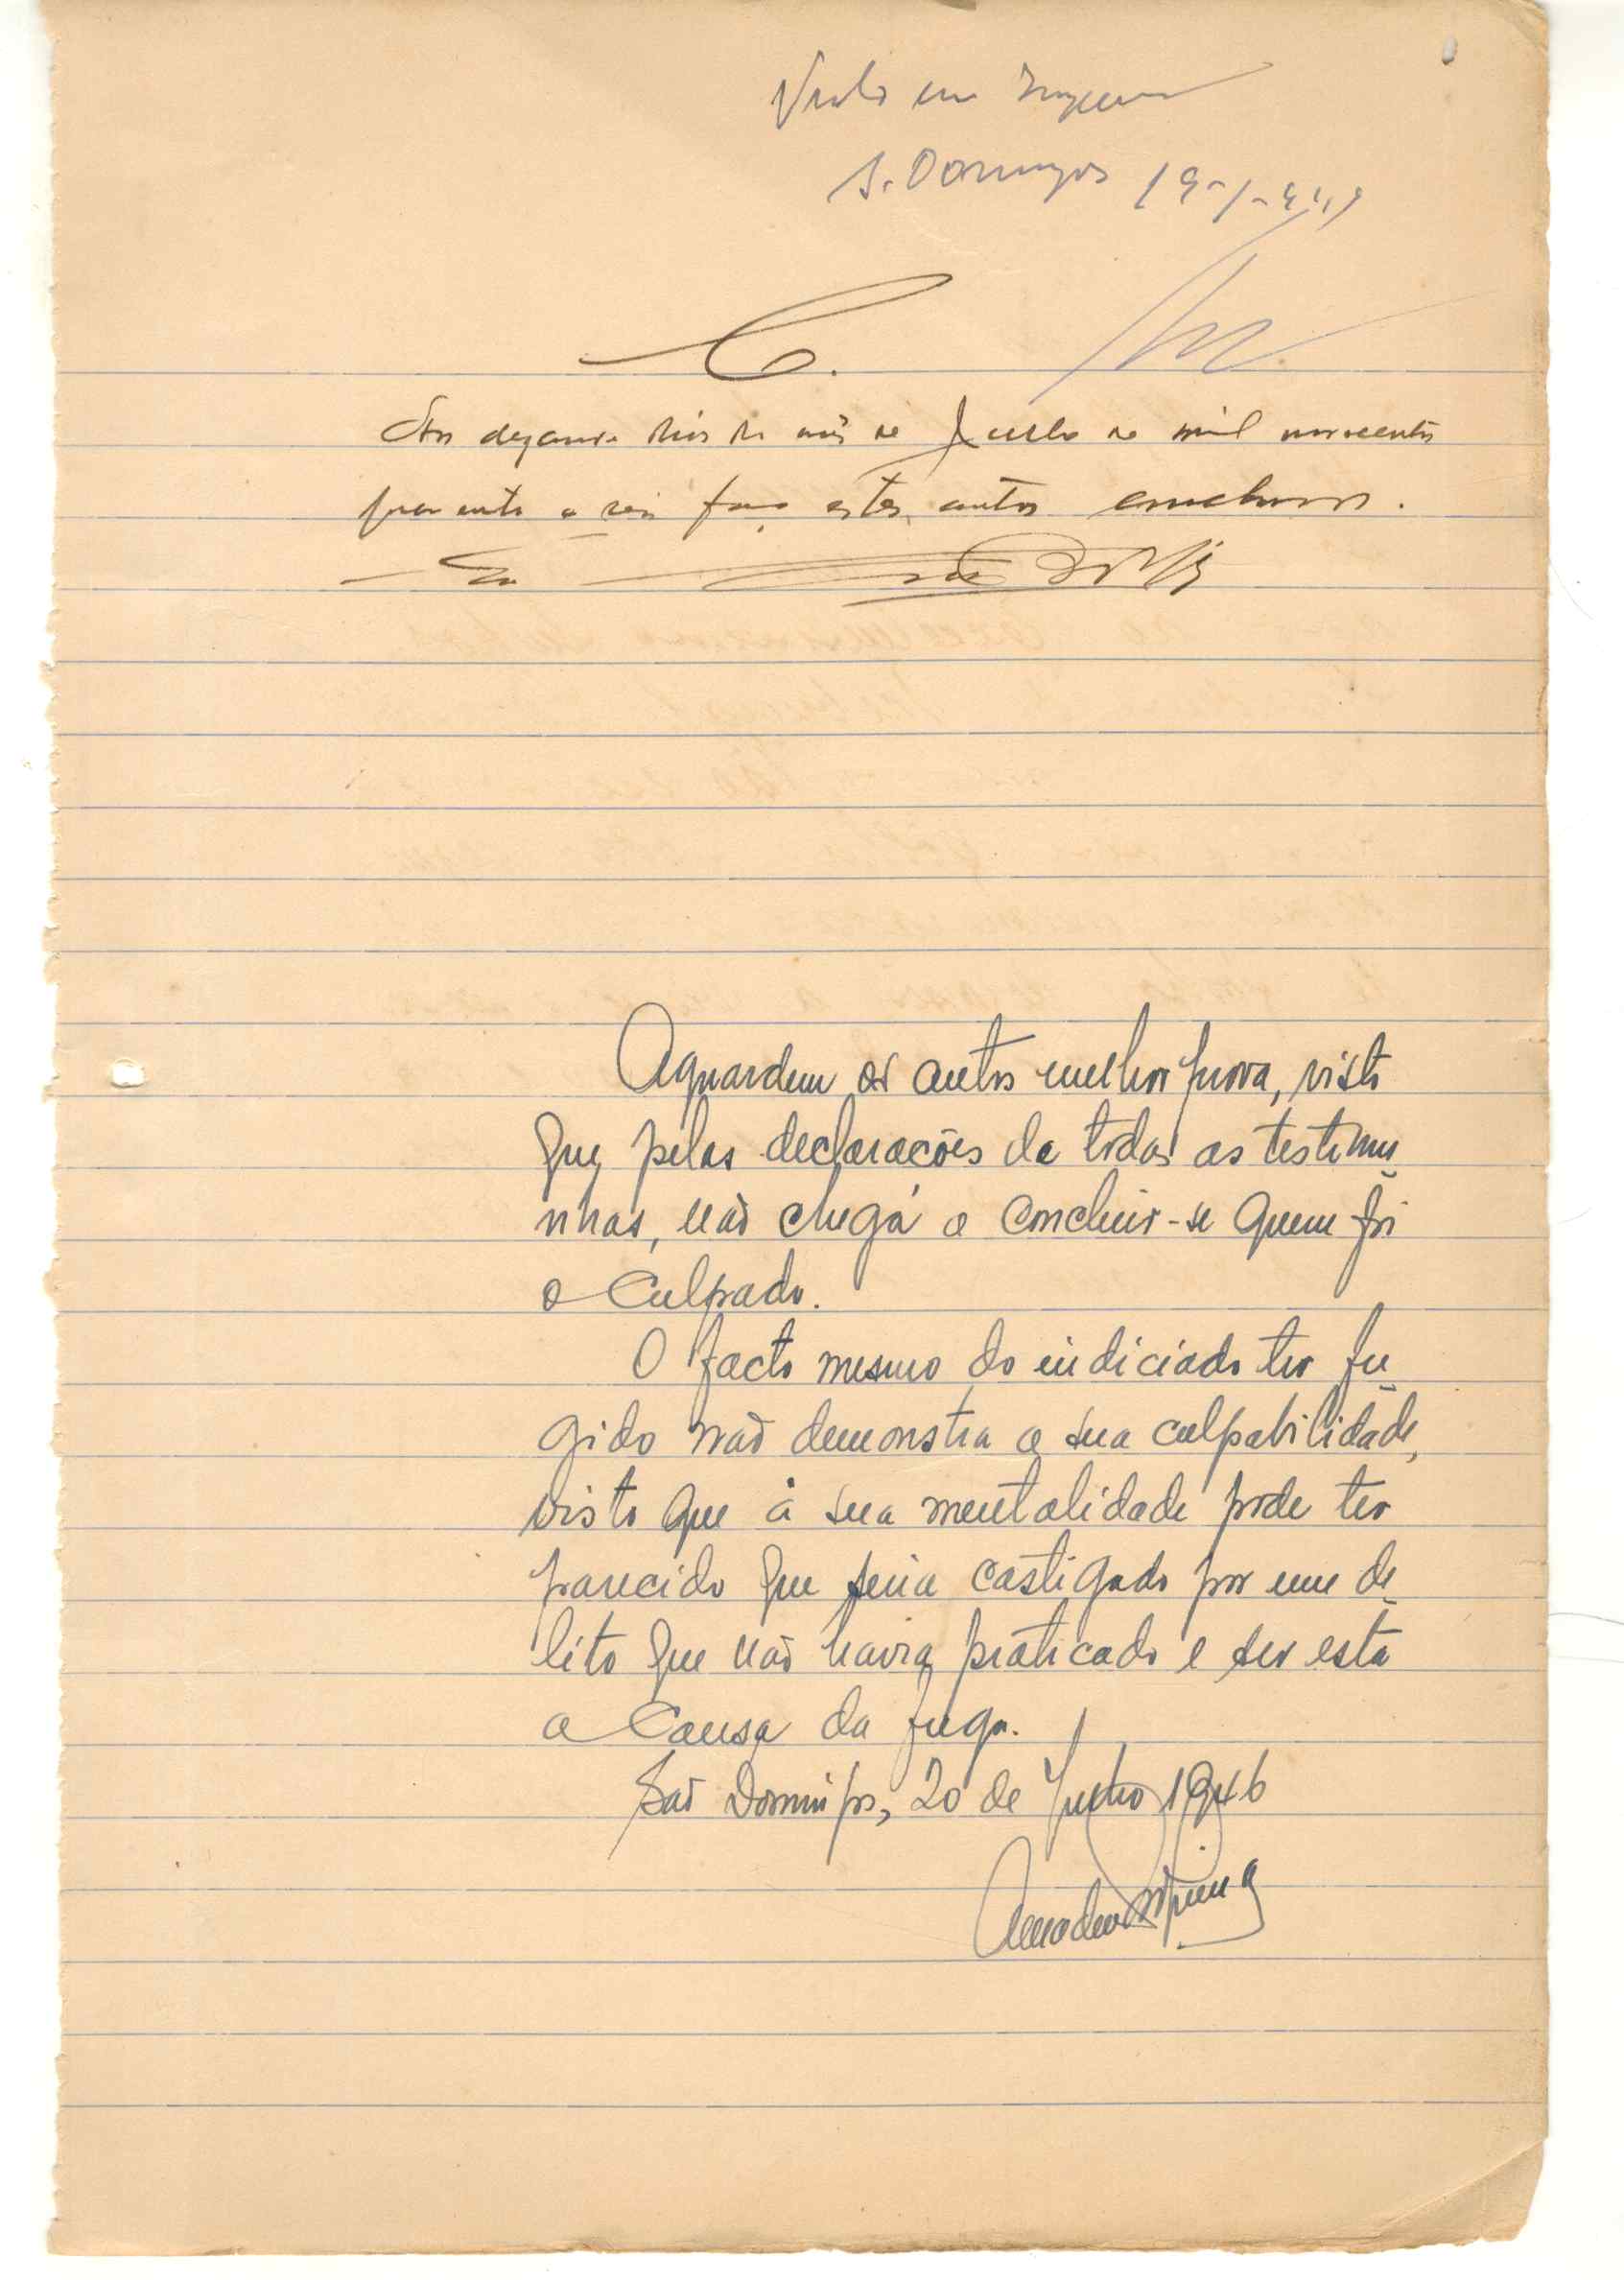 Visto em
S. Domingos 19-1-949
C.
Aos dezanove dias do mês de Junho de mil novecentos
quarenta e seis faço estes autos conclusos.
Eu
Aguardem os autos melhor prova, visto
que, pelas declarações de todas as testemu
nhas, não chega a concluir-se quem foi
o culpado.
O facto mesmo do indiciado ter fu
gido não demonstra a sua culpabilidade,
visto que à sua mentalidade pode ter
parecido que seria castigado por um de
lito que não havia praticado e ser esta
a causa da fuga.
São Domingos, 20 de Junho 1946